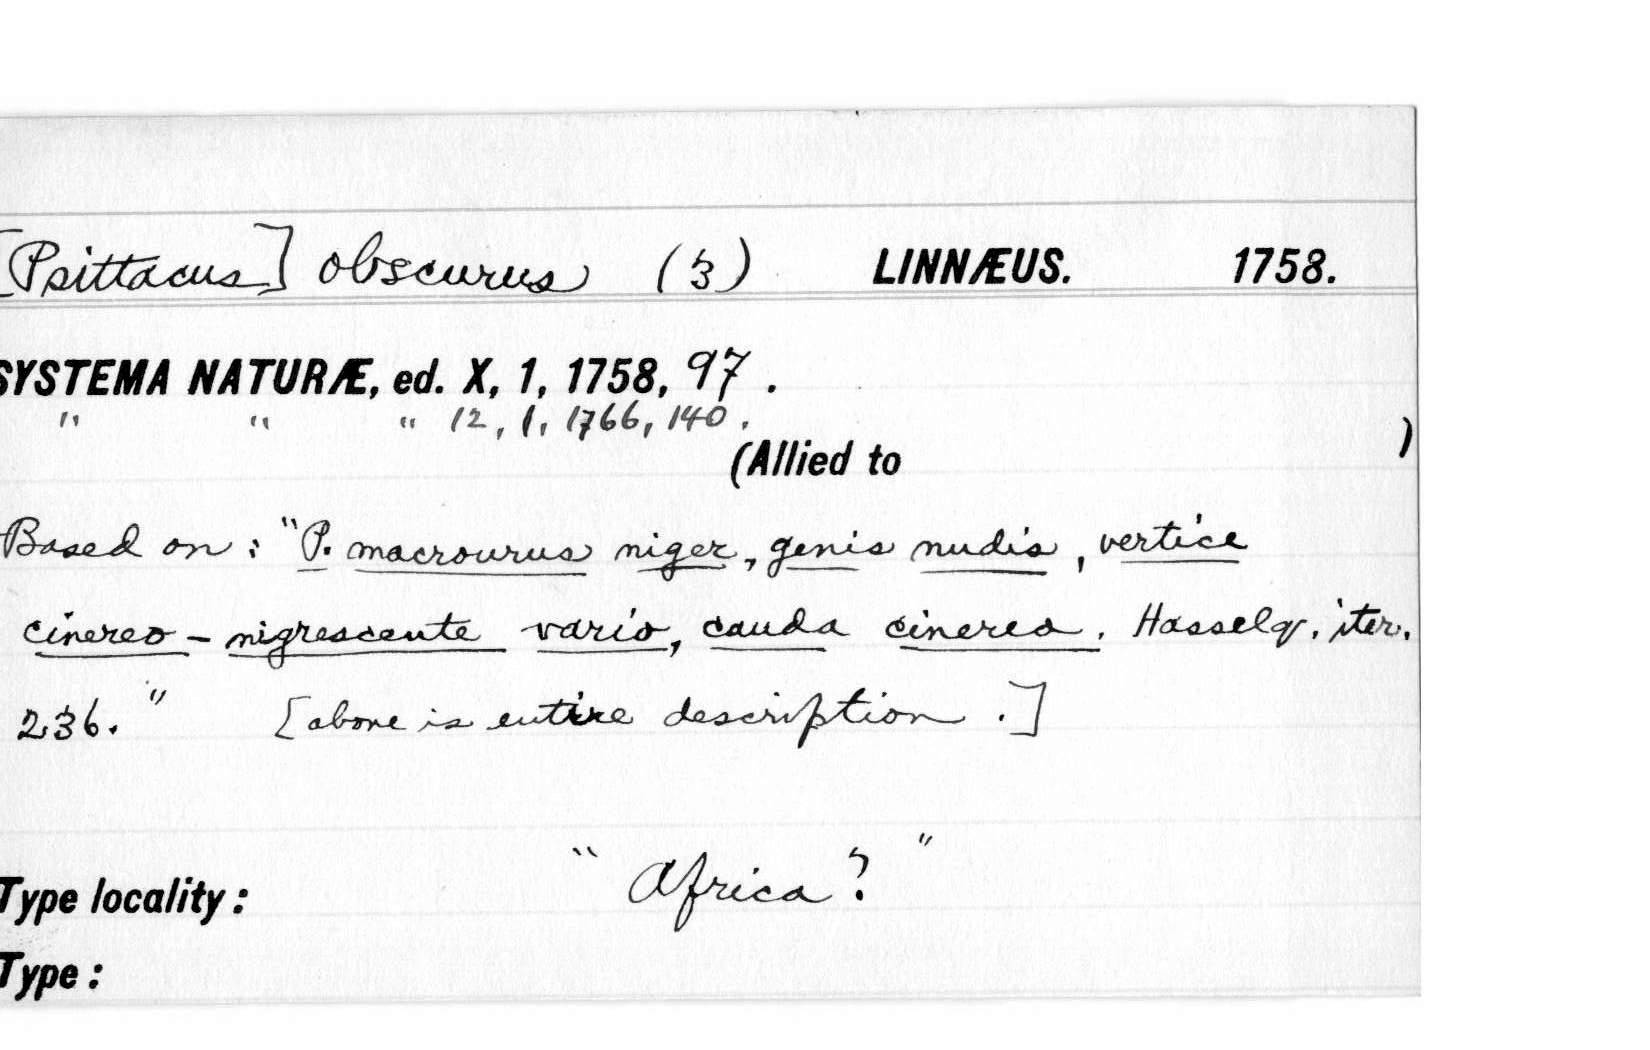 [Psittacus] obscurus (3) LINNÆUS. 1758.
SYSTEMA NATURÆ, ed. X, 1, 1758, 97.
" " " 12, 1, 1766, 140.
(Allied to )
Based on: "P. macrourus niger, genis nudis, vertice
cinereo-nigrescente vario, cauda cinerea. Hasselq. iter.
236." [above is entire description.]
Type locality: "Africa?"
Type: